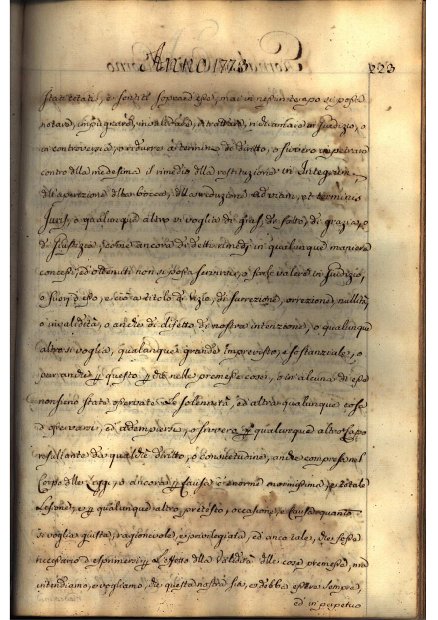 Anno 1773
223
stati citati, e sentiti sopra ad esso, mai in nessun tempo si possa
notare, impugnare, invalidare, ritrattare, rivocare in Giudizio, o
in controversia, o ridurre a termine di diritto, o ovvero impetrare
contro della medesima il rimedio della restituzione in Integrum,
dell'aperizione della bocca, della reduzione ad viam, et terminus
Juris, o qualunque altro si voglia di gius, di fatto, di grazia, o
di Giustizia, come ancora di detti rimedj in qualunque maniera
concessi, ed ottenuti non si possa servire, o farle valere in Giudizio,
o fuori d'esso, e ciò a titolo di vizio, di surrezione, orrezione, nullità,
o invalidità, o anche di difetto di nostra intenzione, o qualunque
altro si voglia, qualunque grande Imprevisto, e sostanziale, o
pur anche questo nelle premesse cose, o in alcuna di esse
non sieno state osservate le solennità, ed altra qualunque cosa
d'osservarsi, ed adempiersi, o ovvero qualunque altro Capo
resultante da qualche diritto, o consuetudine, anche compresa nel
Corpo delle Leggi, o ancora causa enorme enormissima, e totale
Lesione, e qualunque altro pretesto, occasione, e causa quanto
si voglia giusta, ragionevole, e privilegiata, ed anco tale, che fosse
necessario d'esprimersi l'effetto della Validità delle cose premesse, ma
intendiamo, e vogliamo, che questa nostra sia, e debba essere sempre,
ed in perpetuo